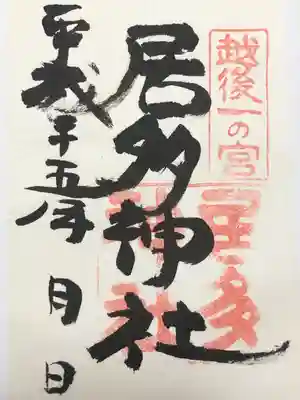 越後一の宮
居多神社
居多神社
平成二十五年 月 日